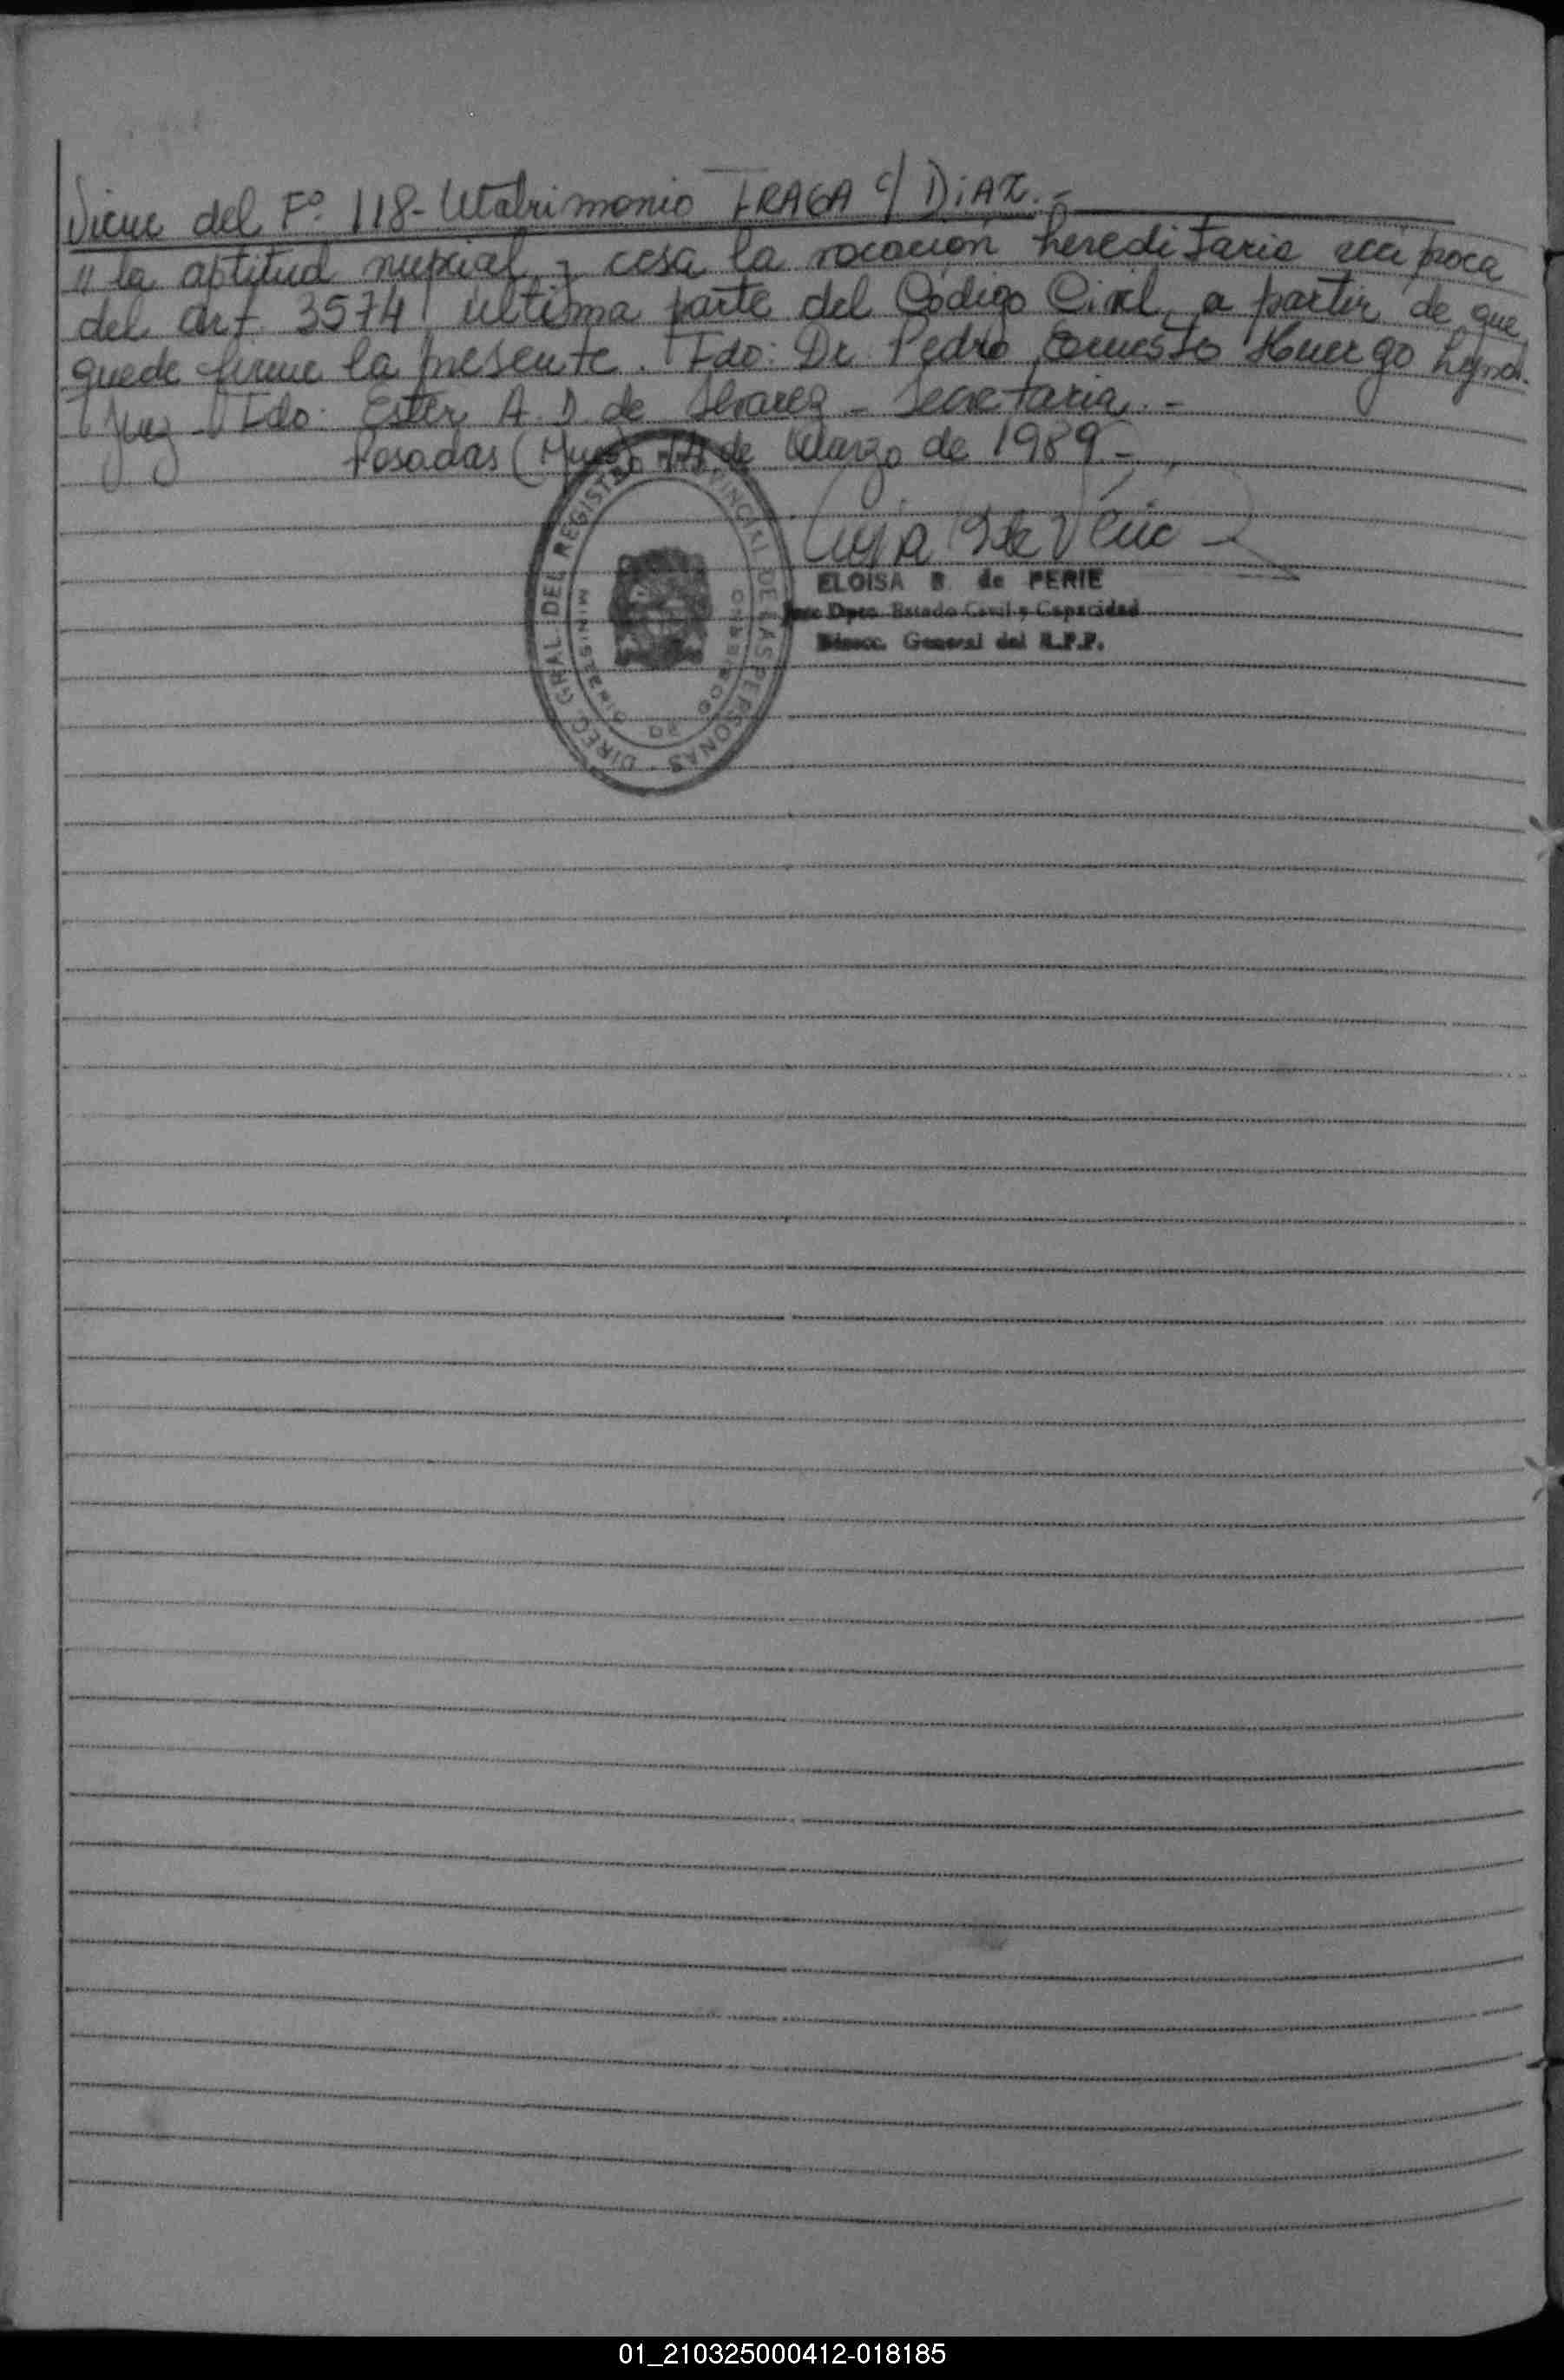 Viene del Fº 118- Matrimonio FRAGA c/ DiAZ.-
// la aptitud nupcial, y cesa la vocación hereditaria recíproca
del art. 3574 última parte del Código Civil, a partir de que
quede firme la presente. Fdo: Dr. Pedro Ernesto Huergo
Juez - Fdo: Ester A. D. de Alvarez - Secretaria.-
Posadas (Mnes) 14 de Marzo de 1989.-
ELOISA B. de PERIE
Dpto. Estado Civil y Capacidad
Direcc. General del R.P.P.
DIREC. GRAL. DEL REGISTRO PROVINCIAL DE LAS PERSONAS
MINISTERIO DE GOBIERNO
01_210325000412-018185